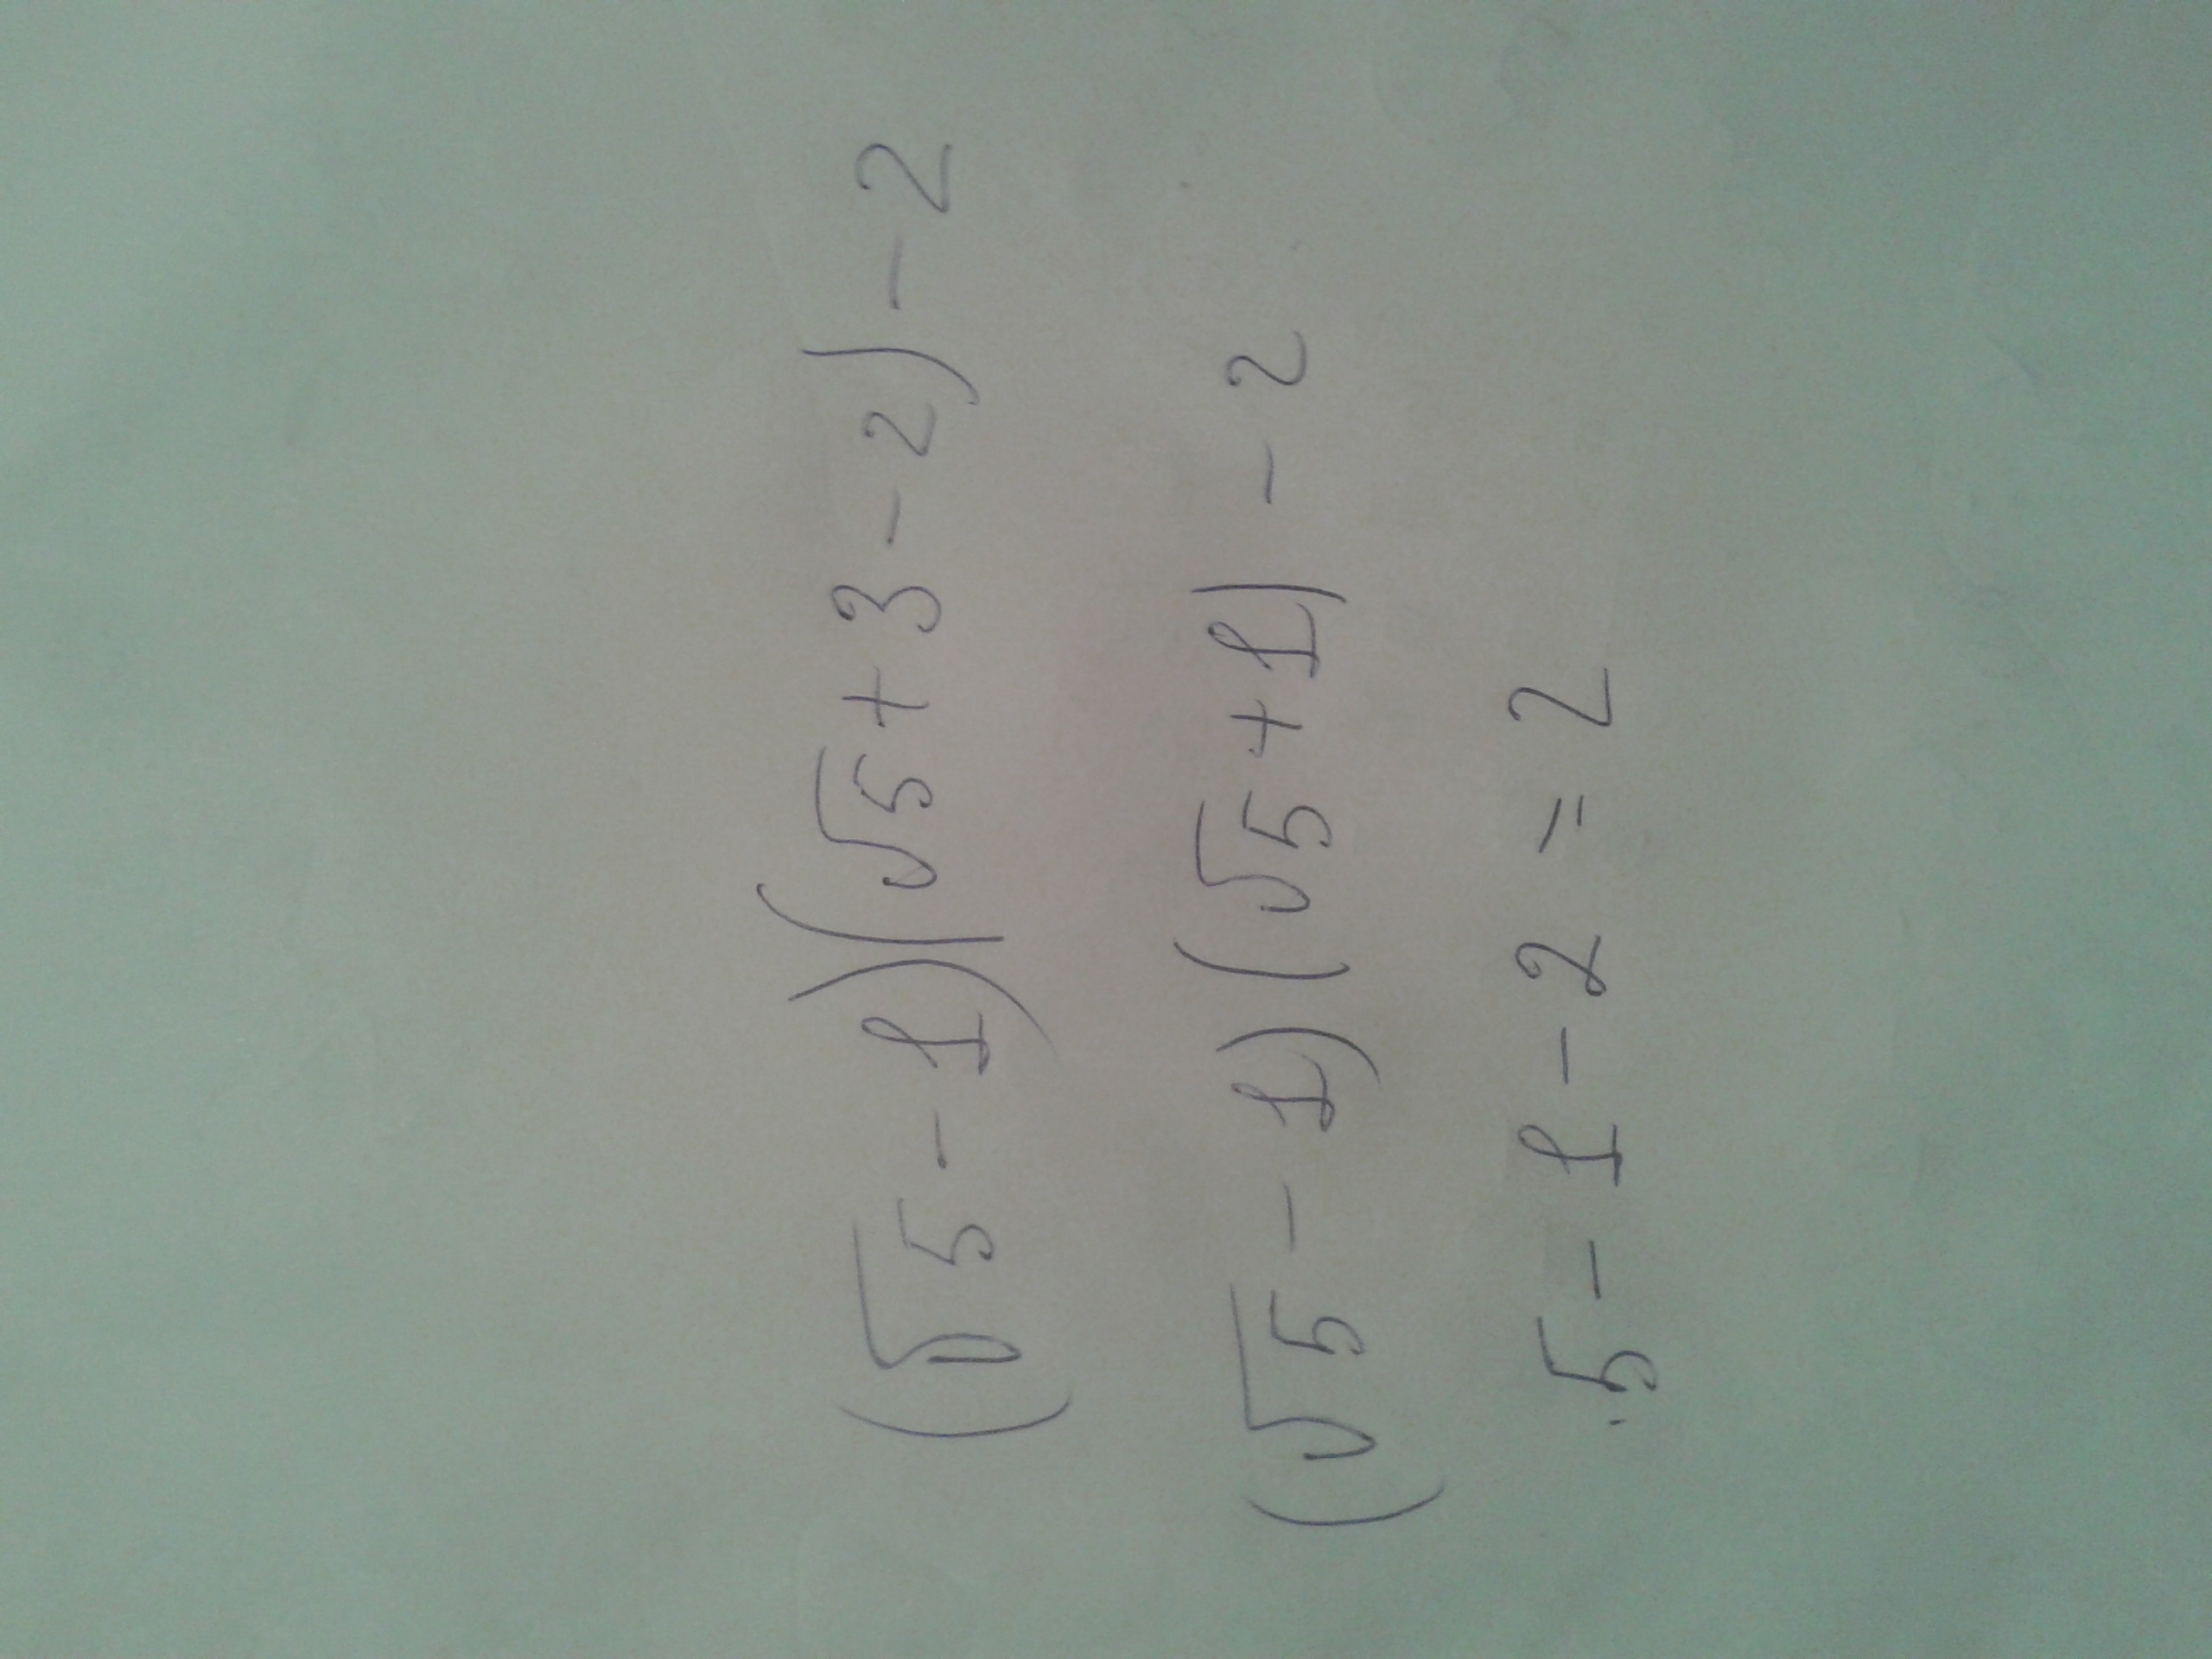 (√5 - 1)(√5 + 3 - 2) - 2
(√5 - 1)(√5 + 1) - 2
5 - 1 - 2 = 2